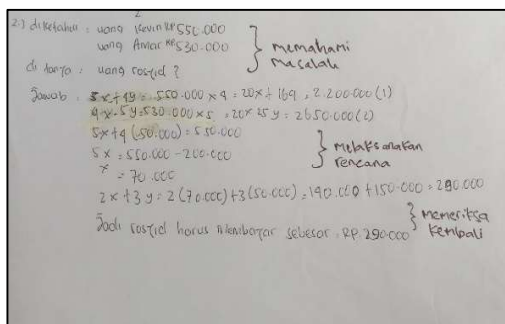 2.) diketahui : uang Kevin Rp 550.000
uang Amar Rp 530.000
memahami
masalah
di tanya : uang rosyid ?
Jawab : 5x+4y = 550.000 x 4 = 20x + 16y = 2.200.000 (1)
4x+5y = 530.000 x 5 = 20x 25y = 2650.000 (2)
5x+4 (50.000) = 550.000
5x = 550.000 - 200.000
x = 70.000
melaksanakan
rencana
2x + 3y = 2 (70.000) + 3 (50.000) = 140.000 + 150.000 = 290.000
Jadi rosyid harus membayar sebesar Rp. 290.000
memeriksa
kembali